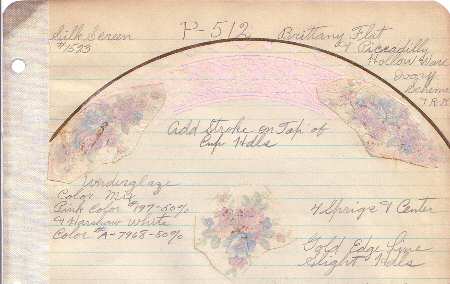 Silk Screen
#1533
P-512
Brittany Flat
& Piccadilly
Hollow Ware
Ivory
Scheme
Add Stroke on Top of
Cup Hdls
Underglaze
Color Mix
Pink Color #197-50%
& Harshaw White
Color #A-7968-50%
4 Sprigs & Center
Gold Edge Line
& Light Hdls